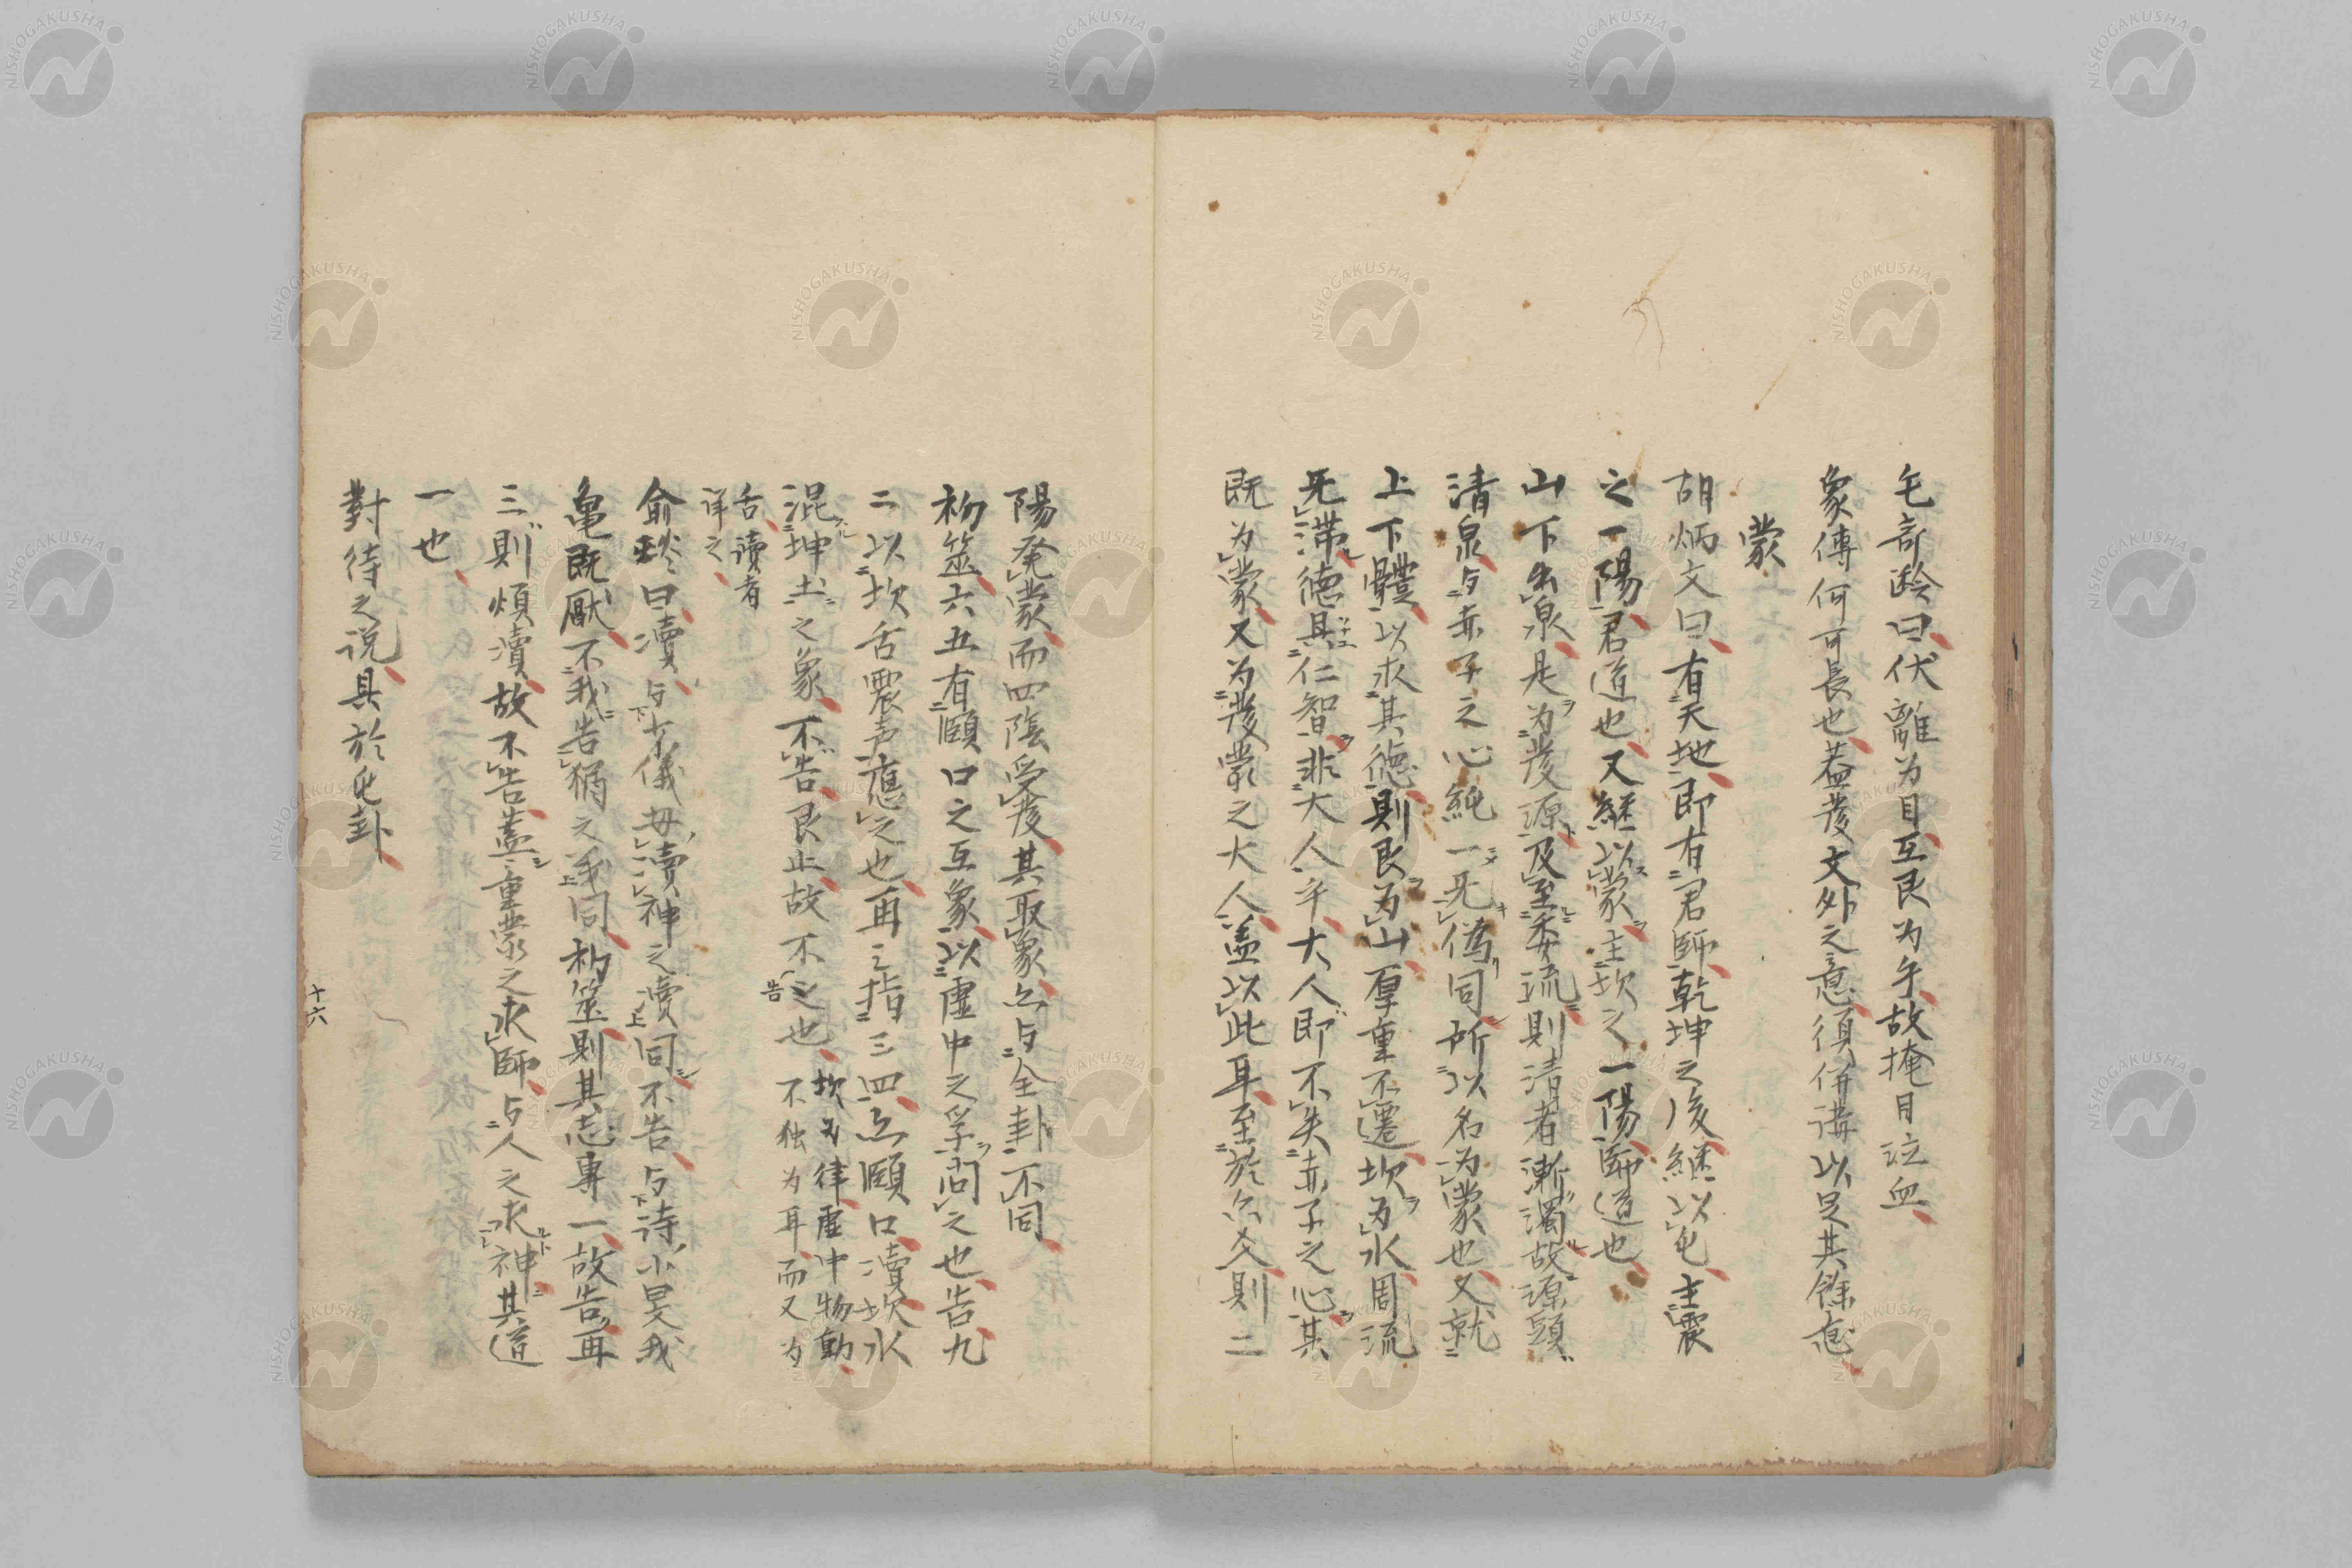 毛竒齢曰伏離为目互艮为手故掩目泣血
象傳何可長也蓋發文外之意須併講以足其餘意
蒙
胡炳文曰有天地即有君師乾坤之後継以屯主震
之一陽君道也又継以蒙主坎之一陽師道也
山下出泉是为發源及至委流則清者漸濁故源頭
清泉与赤子之心純一旡偽同所以名为蒙也又就
上下體以求其徳則艮为山厚重不遷坎为水周流
旡滞徳具仁智非大人乎大人即不失赤子之心其
既为蒙又为發蒙之大人盖以此耳至於六爻則二
陽発蒙而四陰受發其取象亦与全卦不同
初筮六五有頤口之互象以虚中之孚问之也告九
二以坎舌震声應之也再三指三四亦頤口瀆坎水
混坤土之象不告艮止故不之告也坎为律虚中物動
不独为耳而又为
舌讀者
详之
俞琰曰瀆与少儀毋瀆神之瀆同不告与诗小旻我
亀既厭不我告猶之我同初筮則其志専一故告再
三則煩瀆故不告盖童蒙之求師与人之求神其道
一也
對待之说具於屯卦
十六
NISHOGAKUSHA